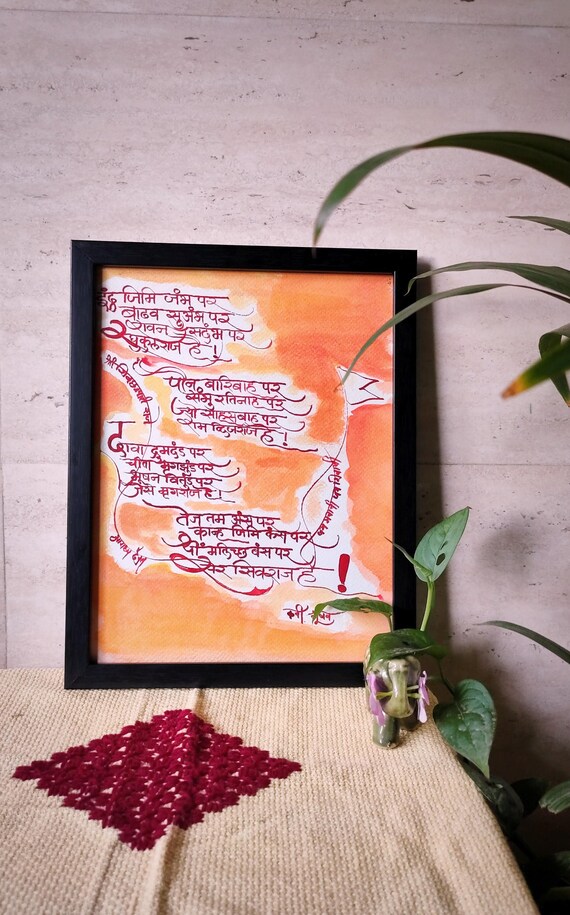 इंद्र जिमि जंभ पर
बाढव सुअंभ पर
रावन सदंभ पर
रघुकुलराज है !
पौन बारिबाह पर
संभु रतिनाह पर
ज्यों सहसबाह पर
राम द्विजराज है !
दावा द्रुमदंड पर
चीता मृगझुंड पर
भूषन वितुंड पर
जैसे मृगराज है !
तेज तम अंस पर
कान्ह जिमि कंस पर
त्यों मलिच्छ बंस पर
सेर सिवराज है !